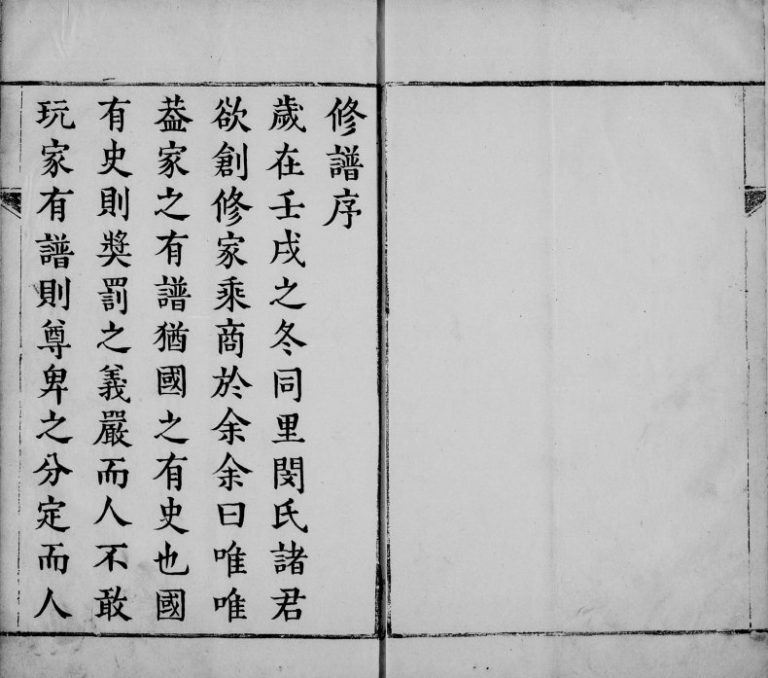 修譜序
歲在壬戌之冬同里閔氏諸君
欲創修家乘商於余余曰唯唯
葢家之有譜猶國之有史也國
有史則奬罰之義嚴而人不敢
玩家有譜則尊卑之分定而人